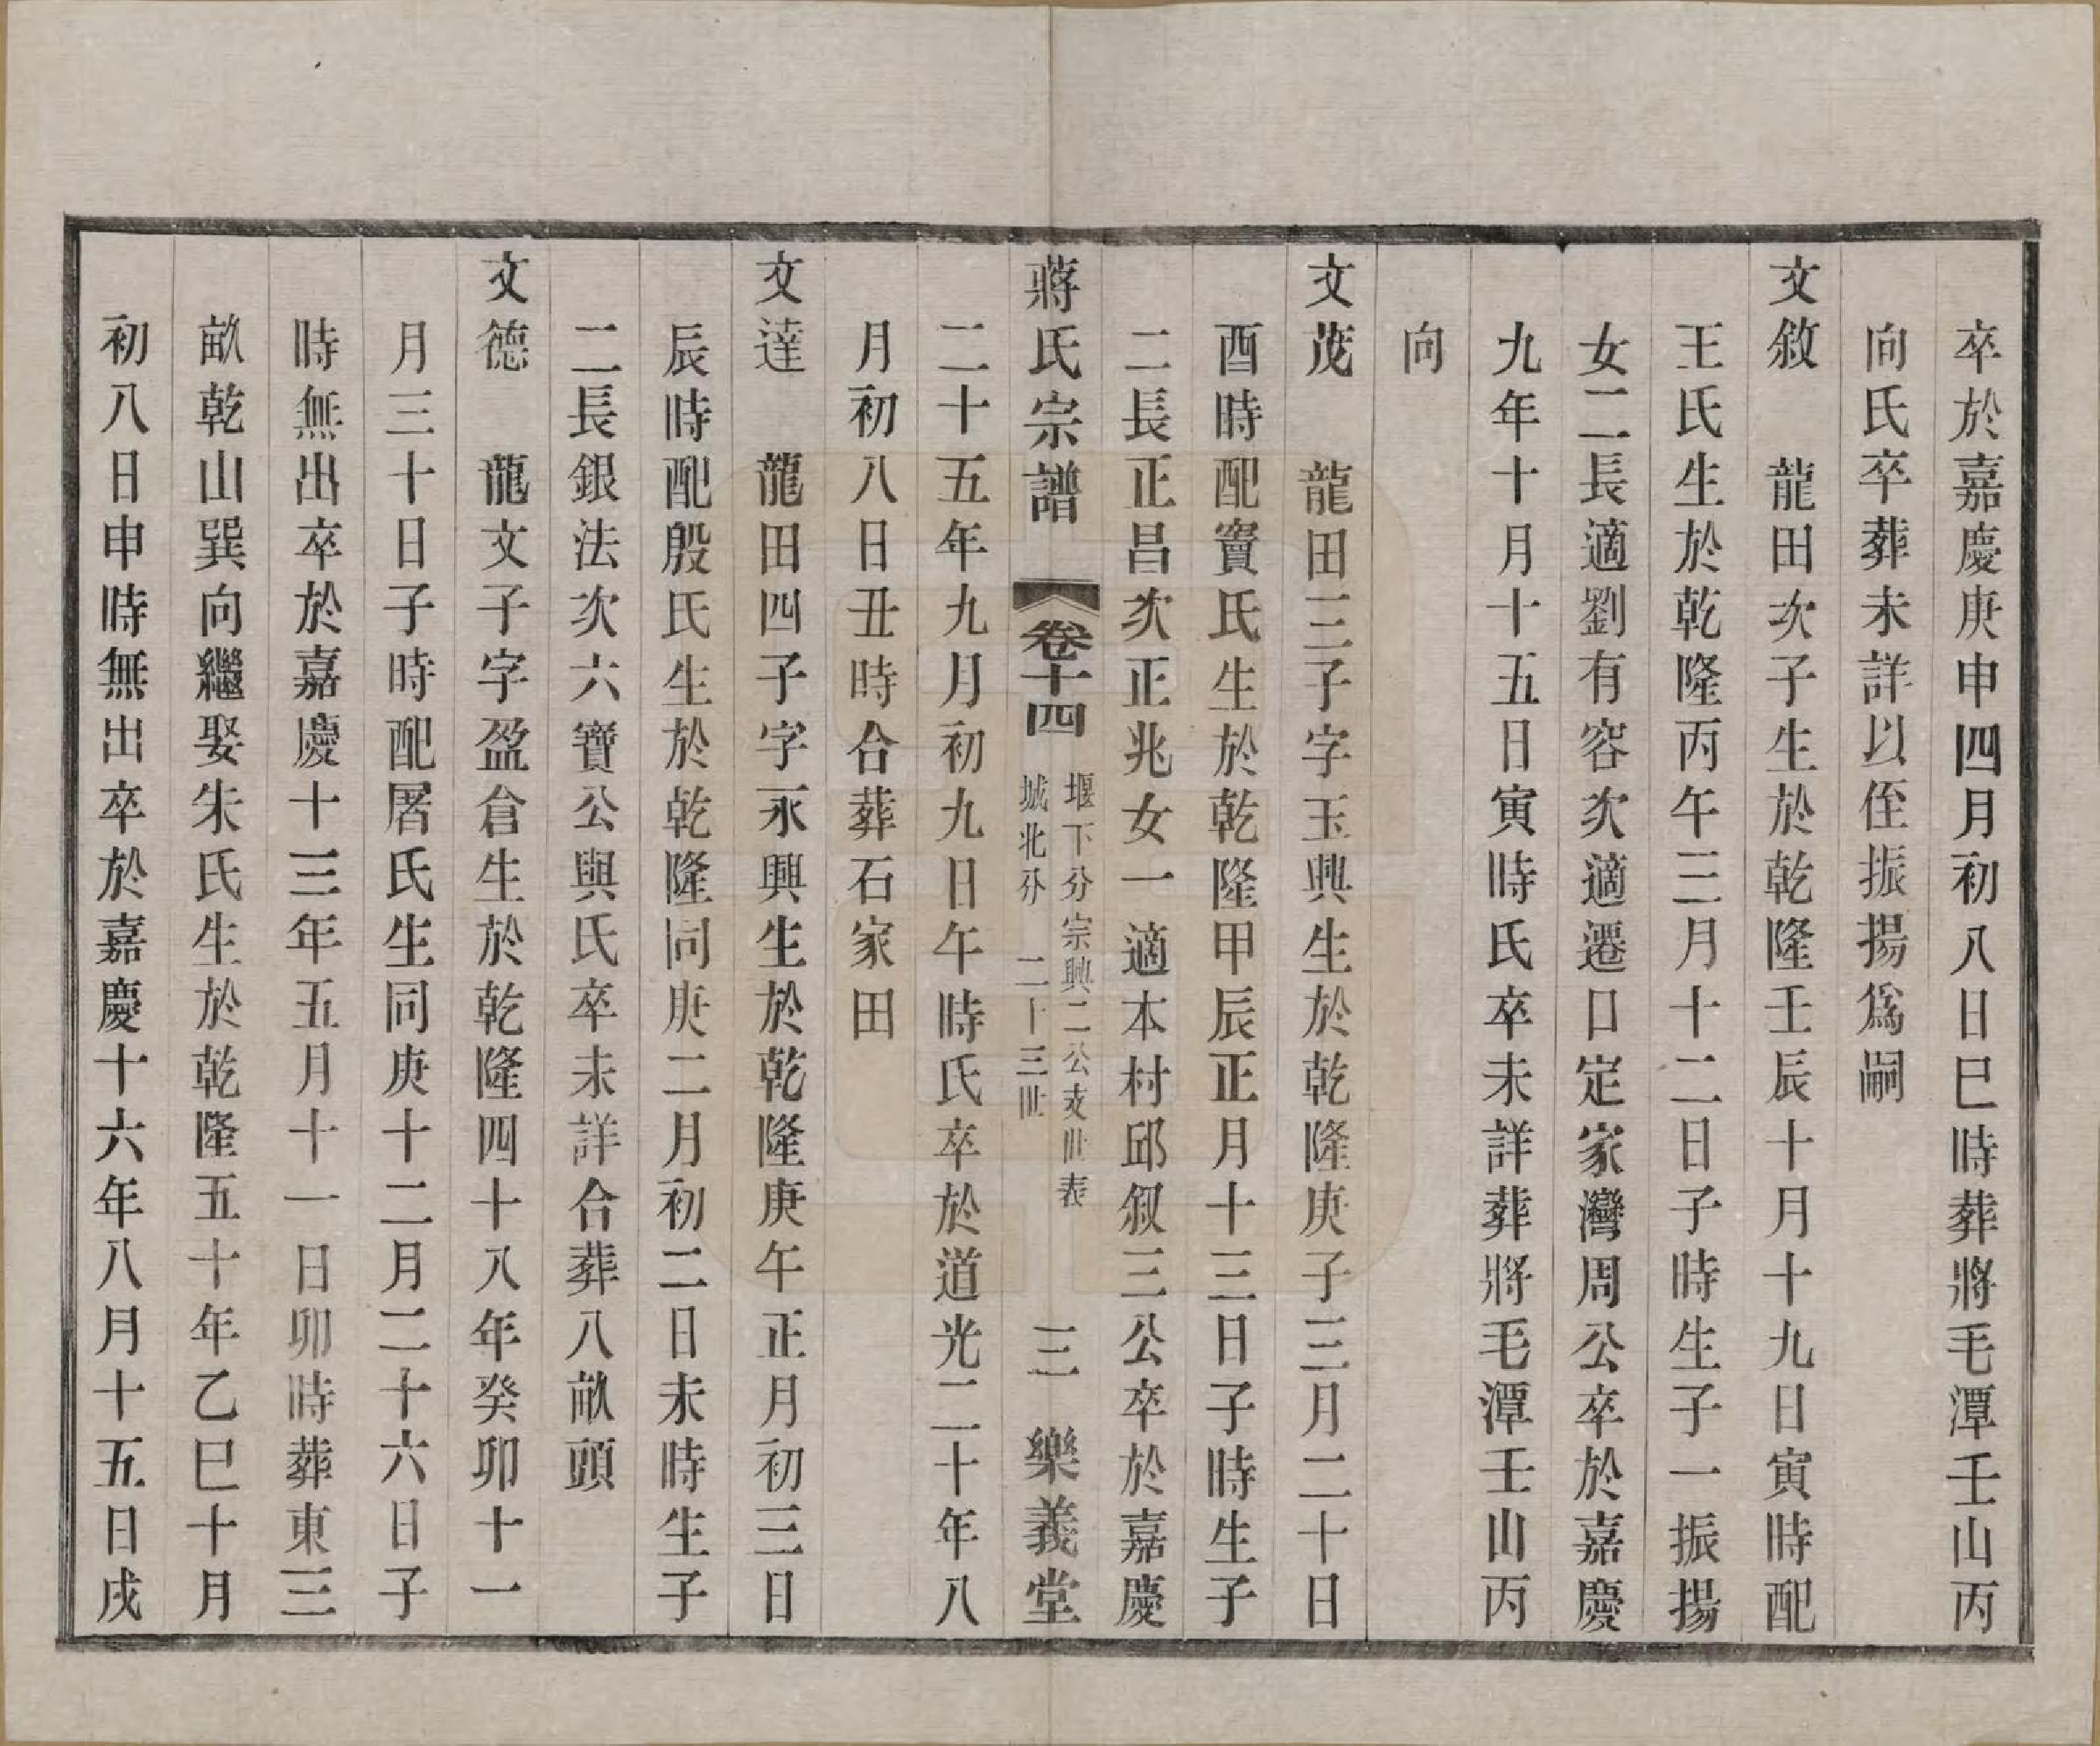 卒於嘉慶庚申四月初八日巳時葬將毛潭壬山丙
向氏卒葬未詳以侄振揚爲嗣
文敘　龍田次子生於乾隆壬辰十月十九日寅時配
王氏生於乾隆丙午三月十二日子時生子一振揚
女二長適劉有容次適遷口定家灣周公卒於嘉慶
九年十月十五日寅時氏卒未詳葬將毛潭壬山丙
向
文茂　龍田三子字玉興生於乾隆庚子三月二十日
酉時配竇氏生於乾隆甲辰正月十三日子時生子
二長正昌次正兆女一適本村邱叙三公卒於嘉慶
蔣氏宗譜　卷十四　堰下分宗興二公支世表
城北分　二十三世　三　樂義堂
二十五年九月初九日午時氏卒於道光二十年八
月初八日丑時合葬石家田
文達　龍田四子字永興生於乾隆庚午正月初三日
辰時配殷氏生於乾隆同庚二月初二日未時生子
二長銀法次六寶公與氏卒未詳合葬八畝頭
文德　龍文子字盈倉生於乾隆四十八年癸卯十一
月三十日子時配屠氏生同庚十二月二十六日子
時無出卒於嘉慶十三年五月十一日卯時葬東三
畝乾山巽向繼娶朱氏生於乾隆五十年乙巳十月
初八日申時無出卒於嘉慶十六年八月十五日戌